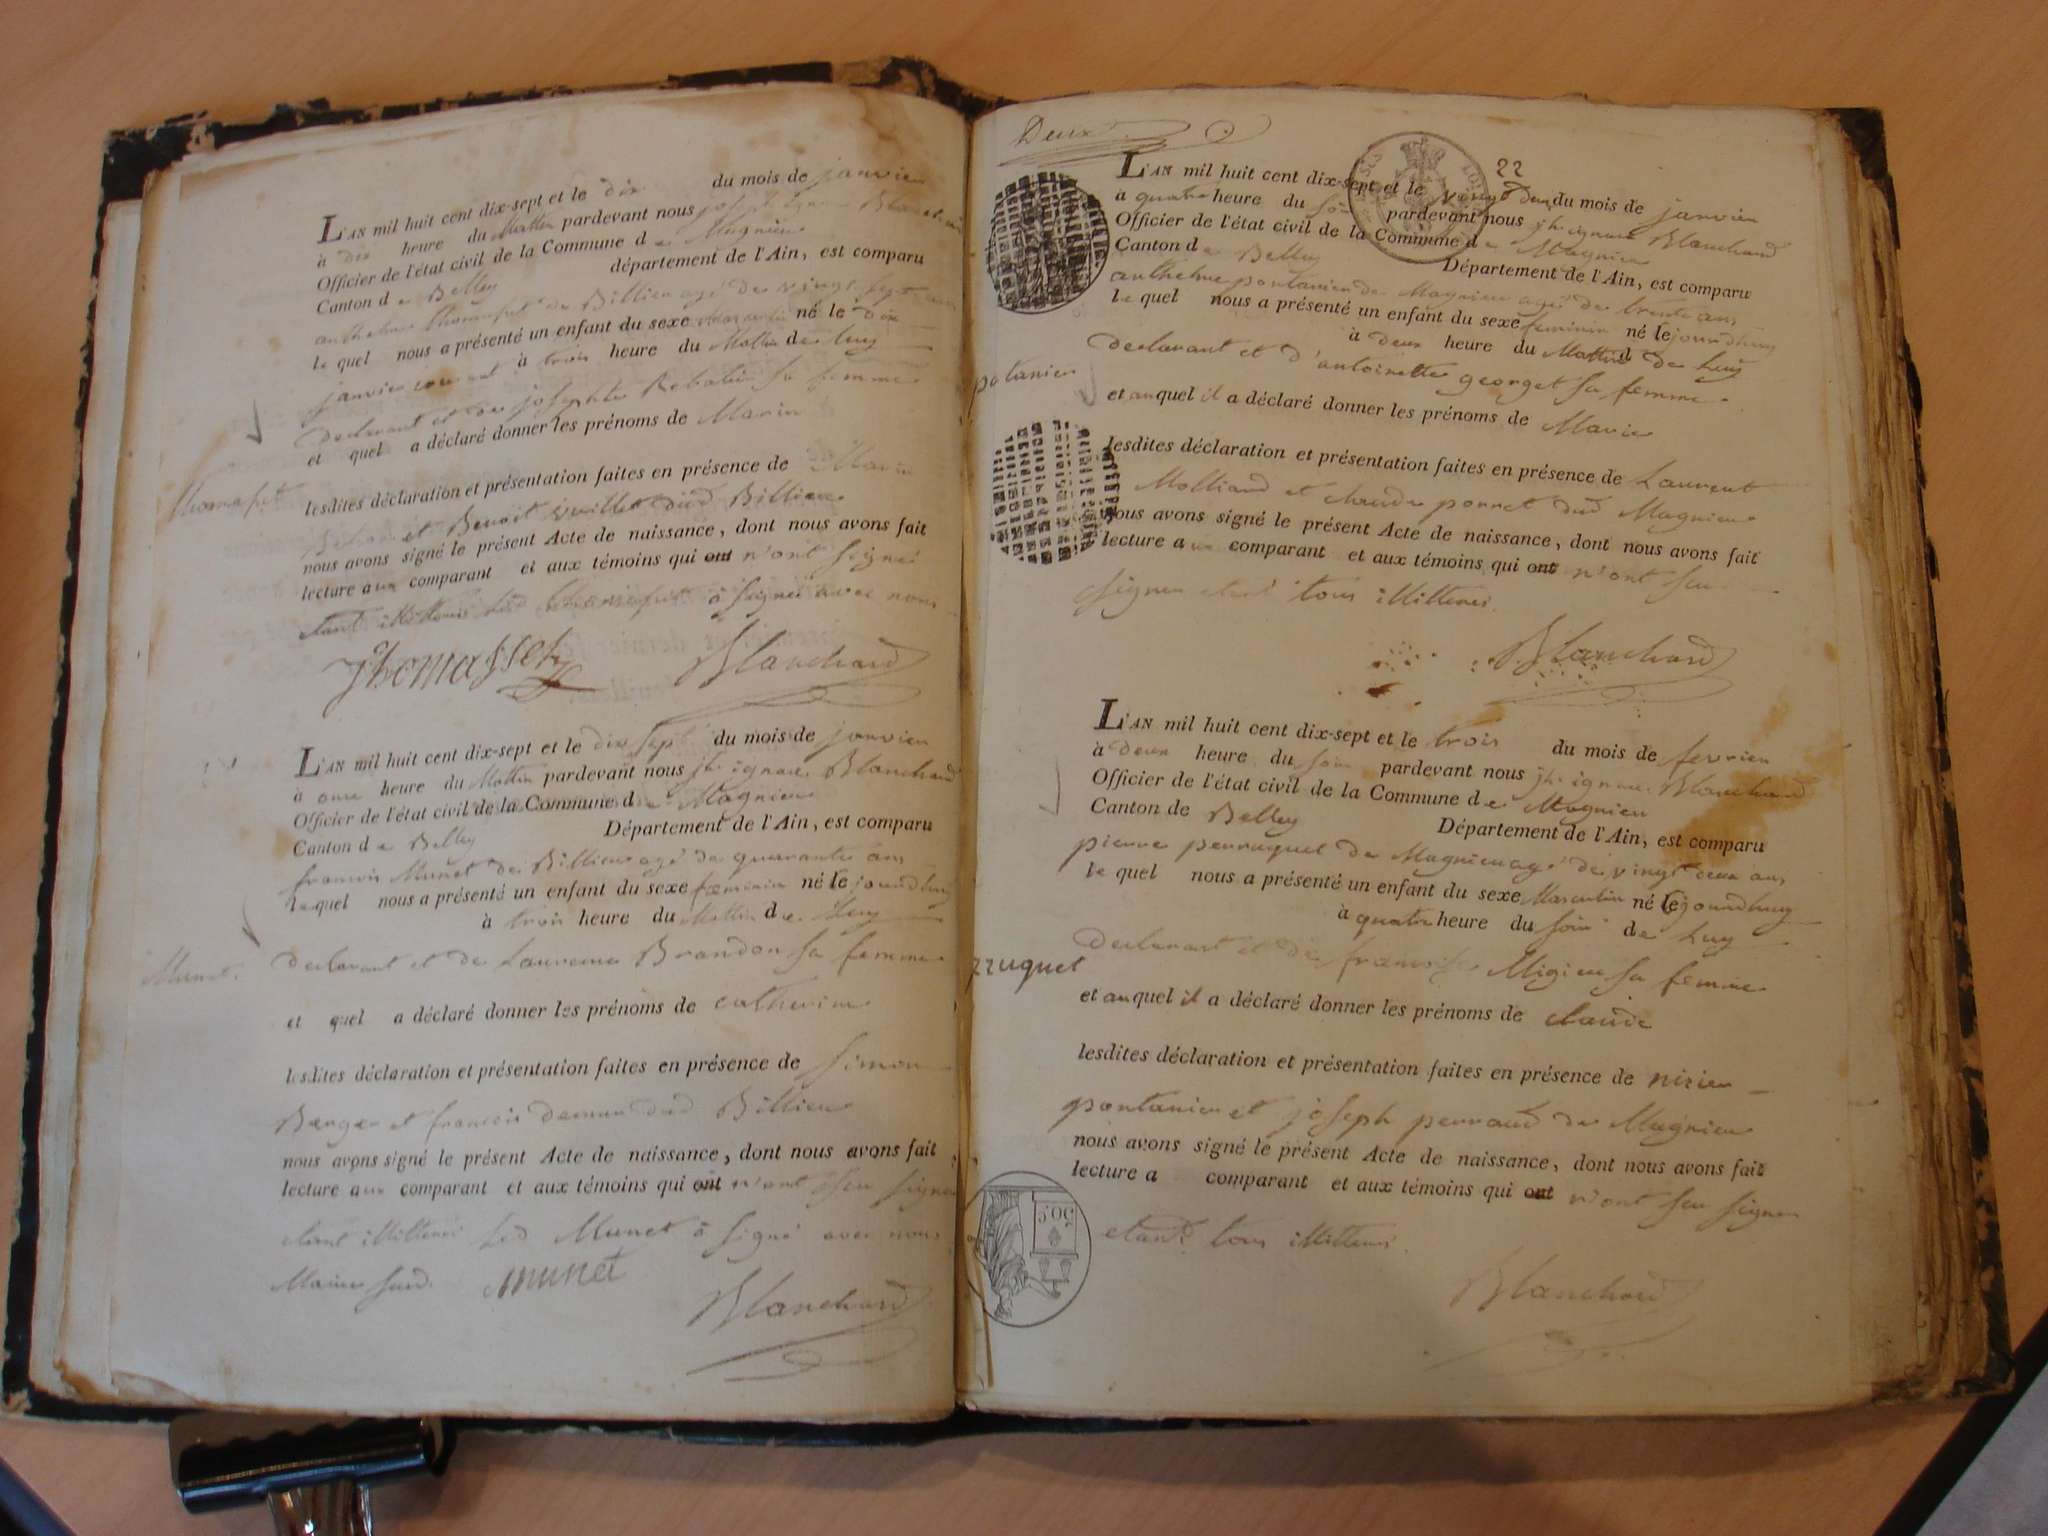 L'AN mil huit cent dix-sept et le dix du mois de janvier
à dix heure du Mattin pardevant nous joseph ignace Blanchard
Officier de l'état civil de la Commune de Magnieu
Canton de Belley département de l'Ain, est comparu
anthelme thomasset de Billieu agé de vingt sept ans
le quel nous a présenté un enfant du sexe Masculin né le dix
janvier courant à trois heure du Mattin de luy
declarant et de josephte Rebatin sa femme
et quel a déclaré donner les prénoms de Marin
lesdites déclaration et présentation faites en présence de Marin
thomasset
et Benoit vuillet dud Billieu
nous avons signé le présent Acte de naissance, dont nous avons fait
lecture aux comparant et aux témoins qui ont n'ont signé
étant illitteres led thomasset à signé avec nous
Thomasset Blanchard
L'AN mil huit cent dix-sept et le dix sept du mois de janvier
à onze heure du Mattin pardevant nous jh ignace Blanchard
Officier de l'état civil de la Commune de Magnieu
Canton de Belley Département de l'Ain, est comparu
francois Munet de Billieu agé de quarante ans
lequel nous a présenté un enfant du sexe feminin né le jourdhuy
à trois heure du Mattin de luy
Munet
declarant et de Laurence Brandon sa femme
et quel a déclaré donner les prénoms de catherine
lesdites déclaration et présentation faites en présence de simon
Berger et francois demeu dud Billieu
nous avons signé le présent Acte de naissance, dont nous avons fait
lecture aux comparant et aux témoins qui ont n'ont sceu signer
etant illitteres led Munet à signé avec nous
Maire susd. munet
Blanchard
Deux
22
L'AN mil huit cent dix-sept et le vingt deux du mois de janvier
à quatre heure du soir pardevant nous jh ignace Blanchard
Officier de l'état civil de la Commune de Magnieu
Canton de Belley Département de l'Ain, est comparu
anthelme pontanier de Magnieu agé de trente ans
le quel nous a présenté un enfant du sexe feminin né le jourdhuy
à deux heure du Mattin de luy
potanier
declarant et d'antoinette georget sa femme
et auquel il a déclaré donner les prénoms de Marie
lesdites déclaration et présentation faites en présence de Laurent
Molliand et claude porret dud Magnieu
nous avons signé le présent Acte de naissance, dont nous avons fait
lecture au comparant et aux témoins qui ont n'ont sceu
signer etant tous illitteres.
Blanchard
L'AN mil huit cent dix-sept et le trois du mois de fevrier
à deux heure du soir pardevant nous jh ignace Blanchard
Officier de l'état civil de la Commune de Magnieu
Canton de Belley Département de l'Ain, est comparu
pierre perruquet de Magnieu agé de vingt deux ans
le quel nous a présenté un enfant du sexe Masculin né le jourdhuy
à quatre heure du soir de luy
rruquet
declarant et de francoise Migieu sa femme
et auquel il a déclaré donner les prénoms de claude
lesdites déclaration et présentation faites en présence de nizier
pontanier et joseph perraud de Magnieu
nous avons signé le présent Acte de naissance, dont nous avons fait
lecture a comparant et aux témoins qui ont n'ont sceu signer
50C
etant tous illitteres.
Blanchard